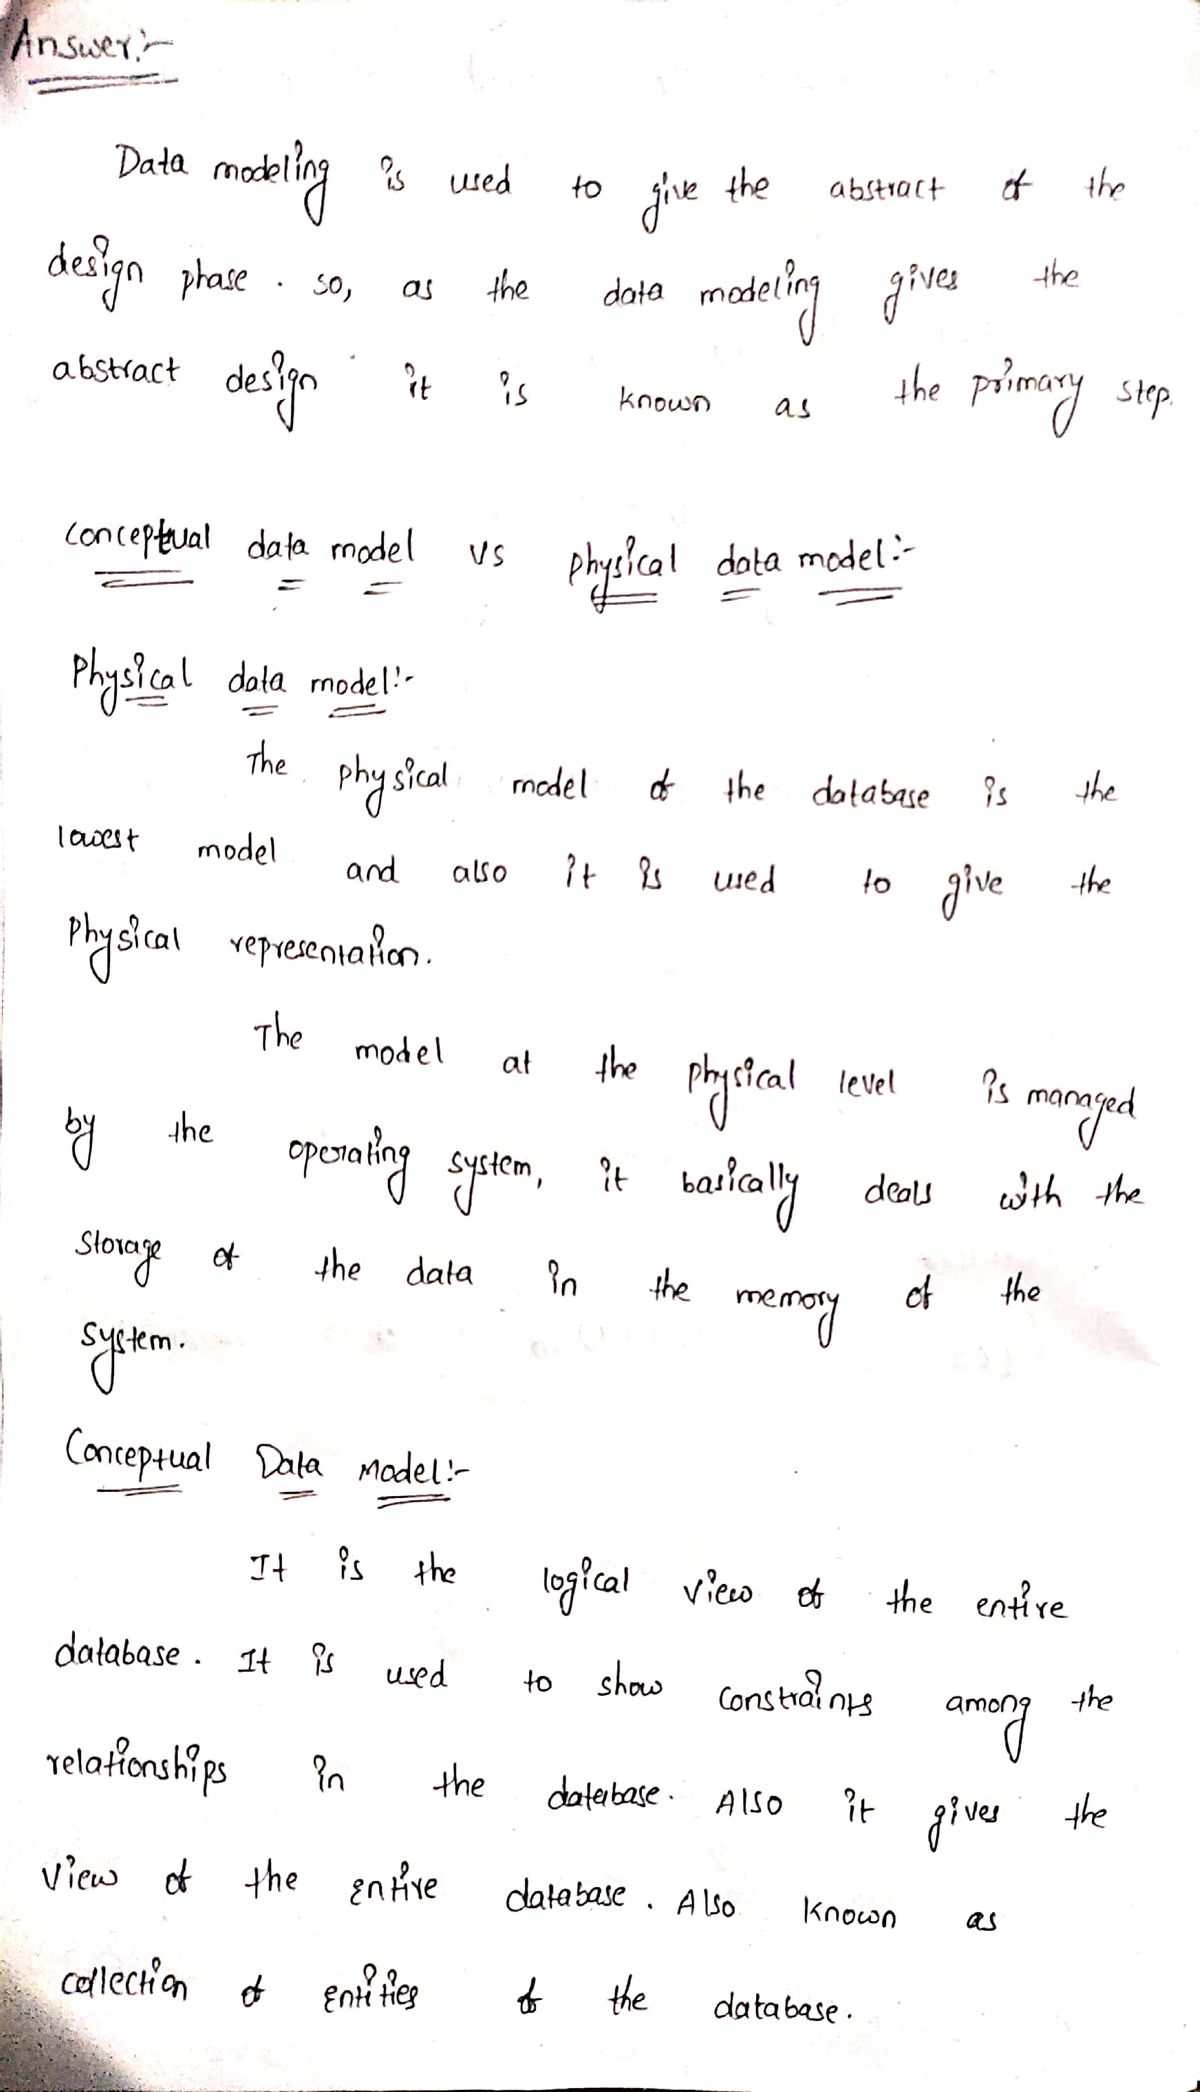 Answer:-
Data modeling is used to give the abstract of the
design phase. so, as the data modeling gives the
abstract design it is known as the primary step.
conceptual data model vs physical data model:-
Physical data model:-
The physical model of the database is the
lowest model and also it is used to give the
Physical representation.
The model at the physical level is managed
by the operating system, it basically deals with the
storage of the data in the memory of the
system.
Conceptual Data Model:-
It is the logical view of the entire
database. It is used to show constraints among the
relationships in the database. Also it gives the
view of the entire database. Also known as
collection of entities of the database.